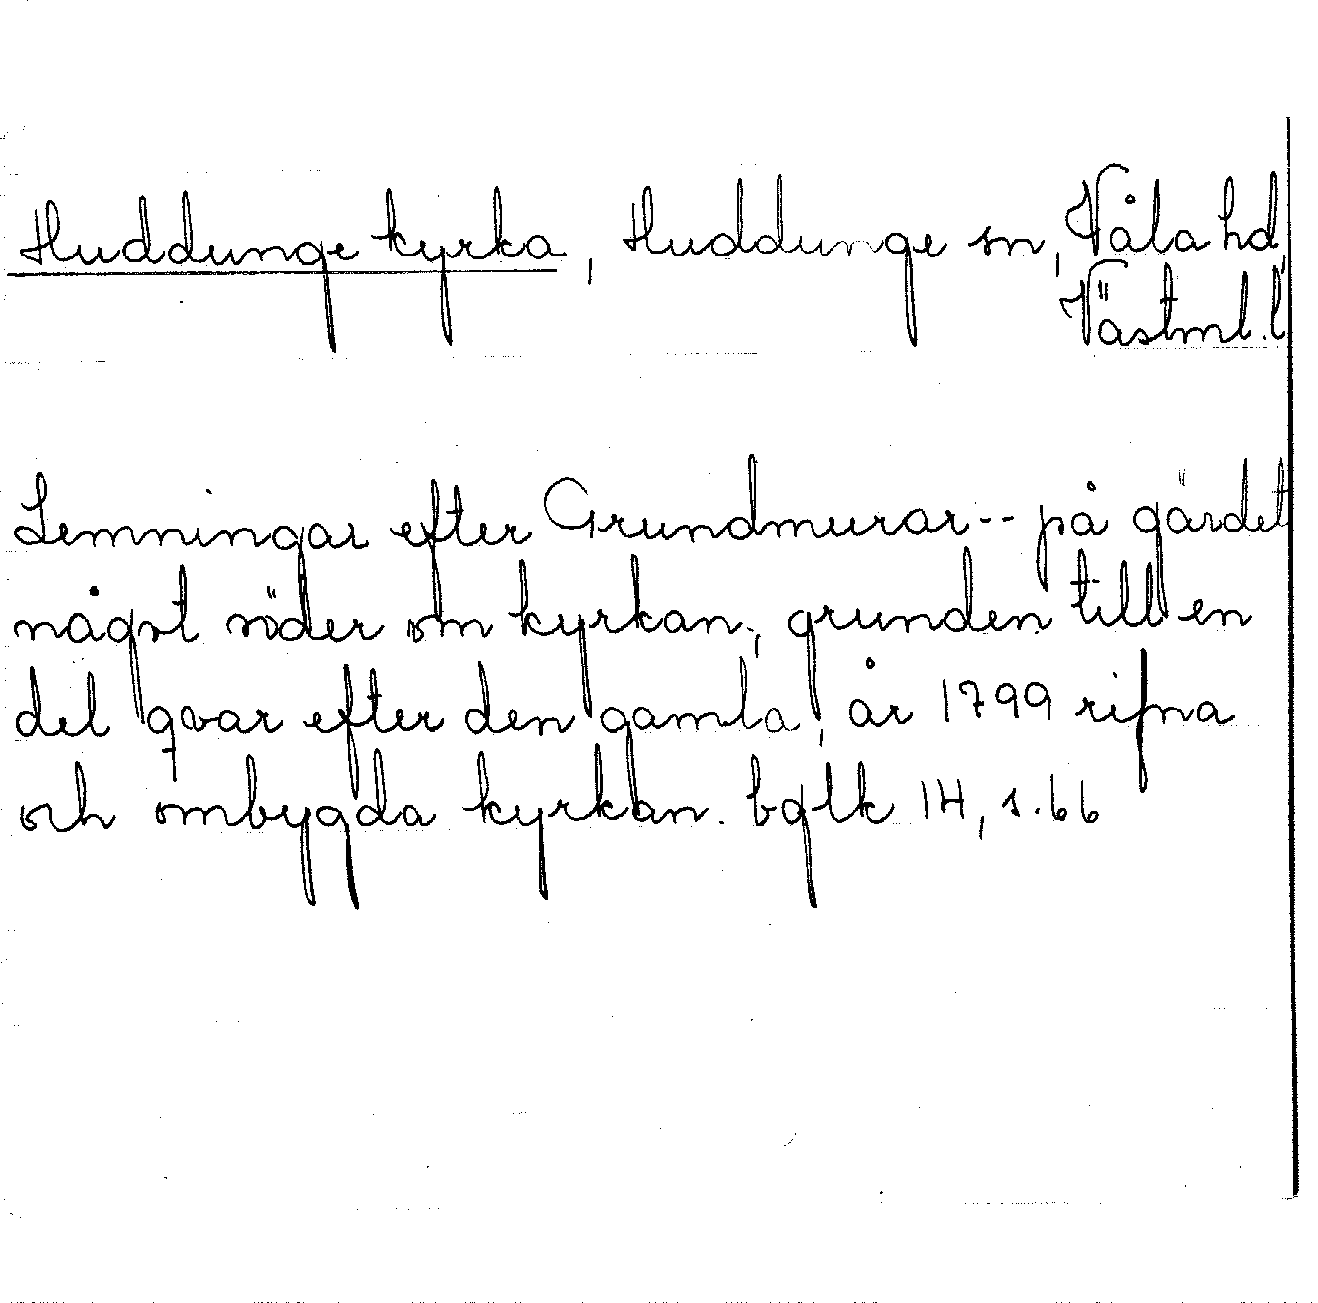 Huddunge kyrka, Huddunge sn, Våla hd,
Västml. l
Lemningar efter Grundmurar -- på gärdet
något söder om kyrkan, grunden till en
del qvar efter den gamla, år 1799 rifna
och ombygda kyrkan. bglk 14, s. 66